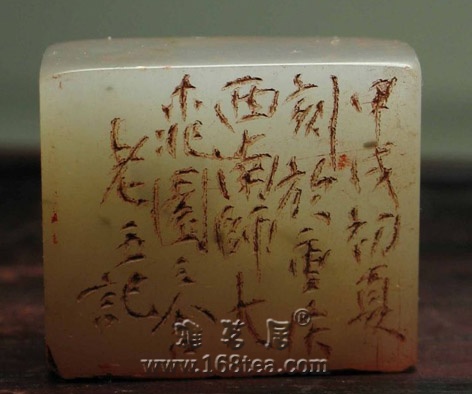 甲戌初夏
刻於重庆
西南師大
桃園主人
老 記
雅茗居®
www.168tea.com